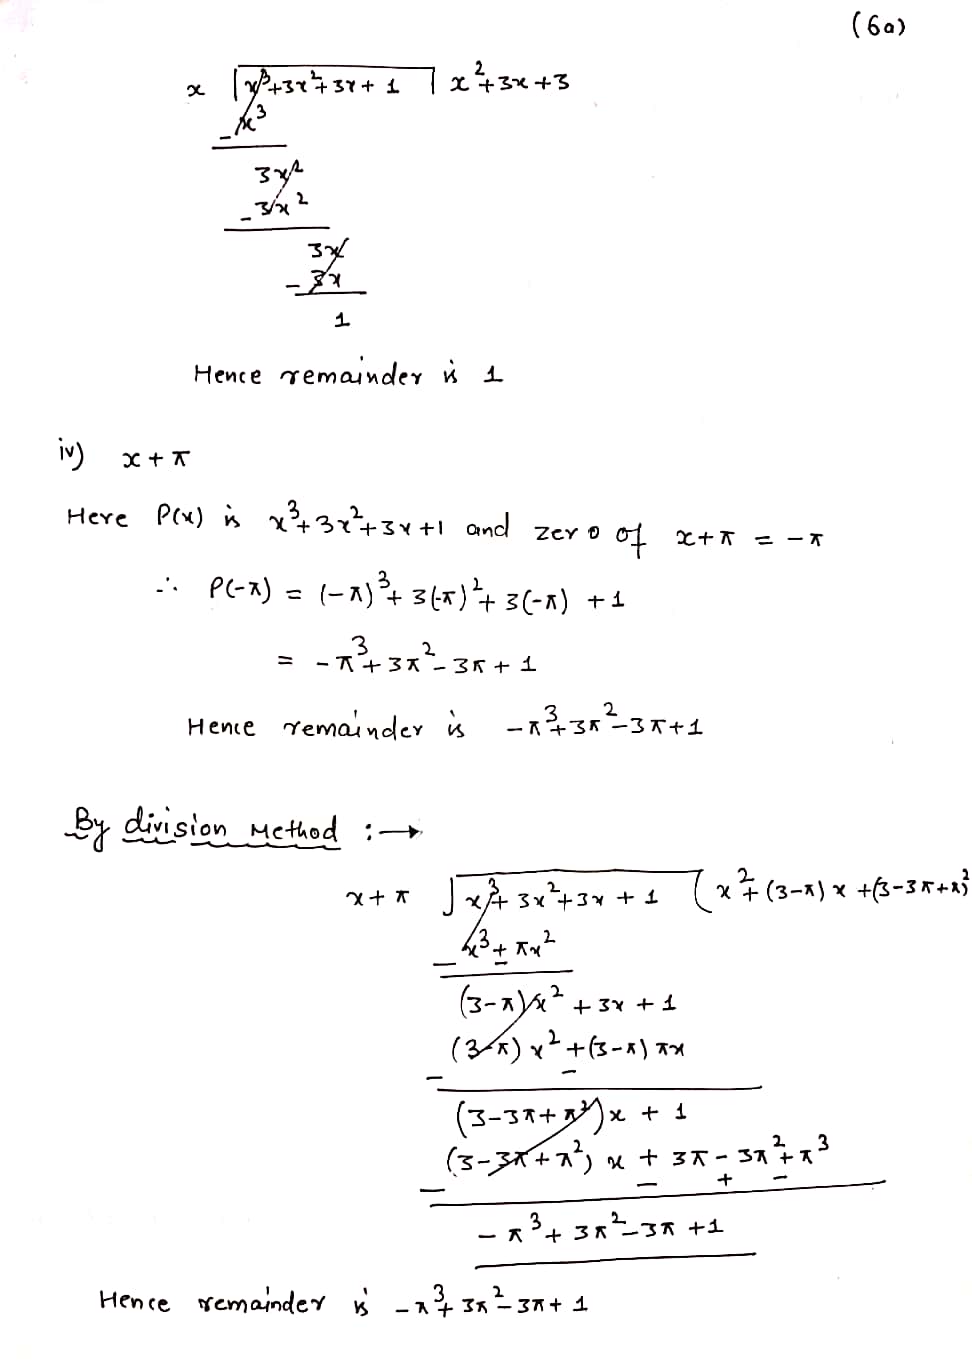 (6a)
x ⟌ x³+3x²+3x+ 1 | x²+3x+3
-x³
3x²
-3x²
3x
-3x
1
Hence remainder is 1
iv) x+π
Here P(x) is x³+3x²+3x+1 and zero of x+π = -π
∴ P(-π) = (-π)³+ 3(-π)²+ 3(-π) +1
= -π³+3π²-3π+ 1
Hence remainder is -π³+3π²-3π+1
By division Method :→
x+π √ x³+ 3x²+3x + 1 ( x²+ (3-π) x +(3-3π+π)²
- x³ + πx²
-
(3-π)x² + 3x + 1
- (3-π) x² +(3-π) πx
-
(3-3π+π²)x + 1
- (3-3π+π²) x + 3π - 3π²+π³
- + -
-π³+ 3π²-3π +1
Hence remainder is -π³+ 3π²-3π+ 1